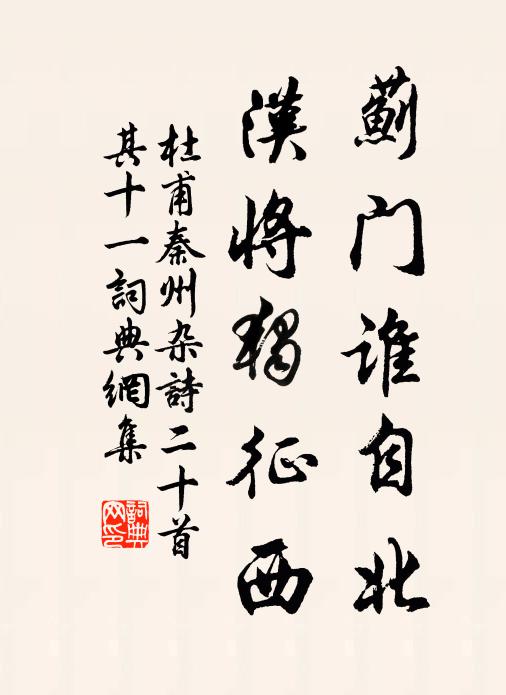 薊门谁自北
漢将独征西
杜甫秦州杂詩二十首
其十一詞典網集
詞典
网印